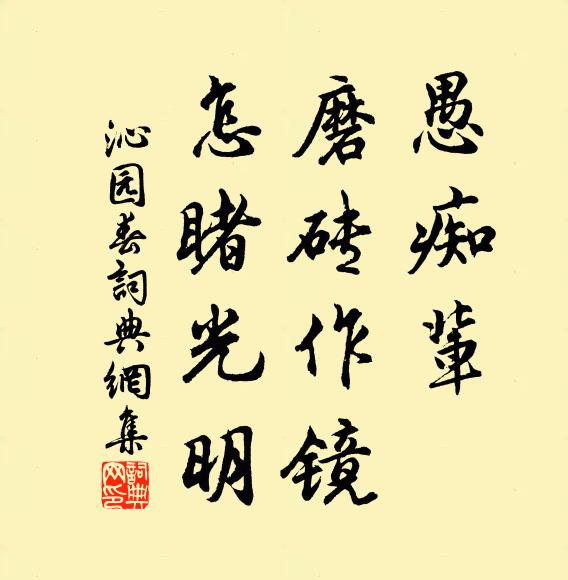 愚痴輩
磨砖作镜
怎睹光明
沁园春詞典網集